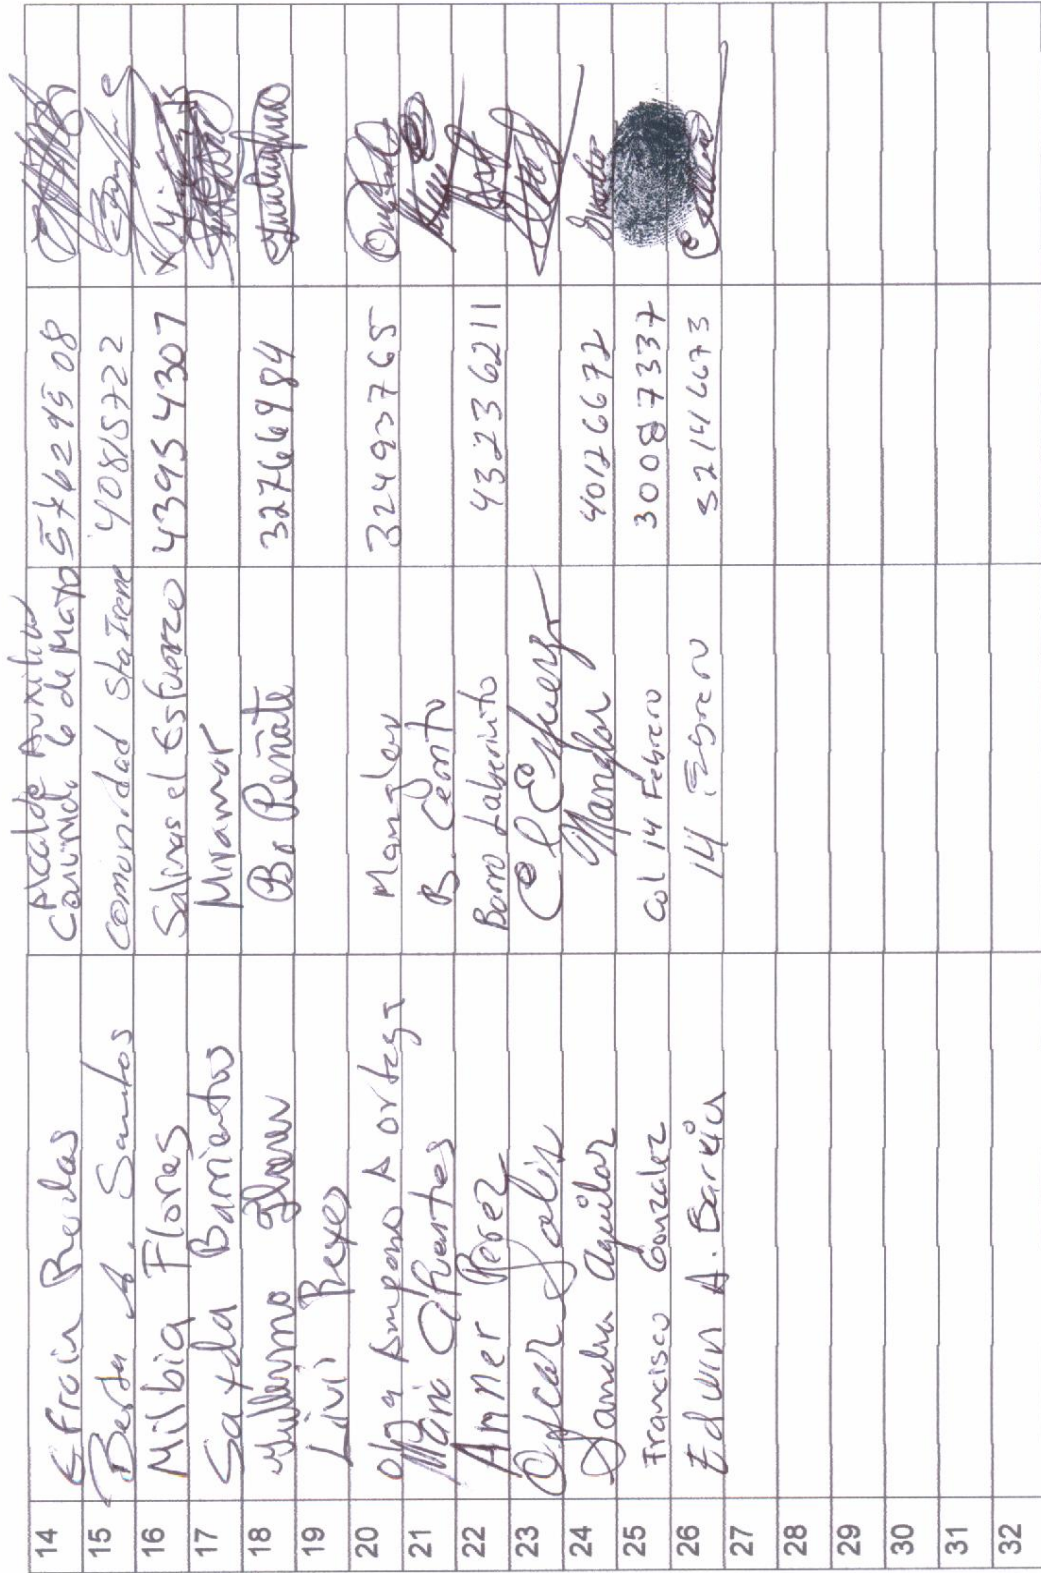 14 Efrain Alcalde Auxiliar
Comunid. 6 de Mayo 57629508
15 Berta A. Santos Comunidad Sta Irene 40815722
16 Milbia Flores Salinas el Esfuerzo 43954307
17 Sayda Barrientos Miramar
18 Guillermo Bo Peñate 32766984
19 Livi Reyes
20 Olga Amparo A Ortega Manglar 32493765
21 B. Cerrito
22 Amner Perez Barrio Laberinto 43236211
23 Oscar Solis El Esfuerzo
24 Sandra Aguilar Manglar 40126672
25 Francisco Gonzalez Col 14 Febrero 30087337
26 Edwin A. 14 Febrero 52146673
27
28
29
30
31
32